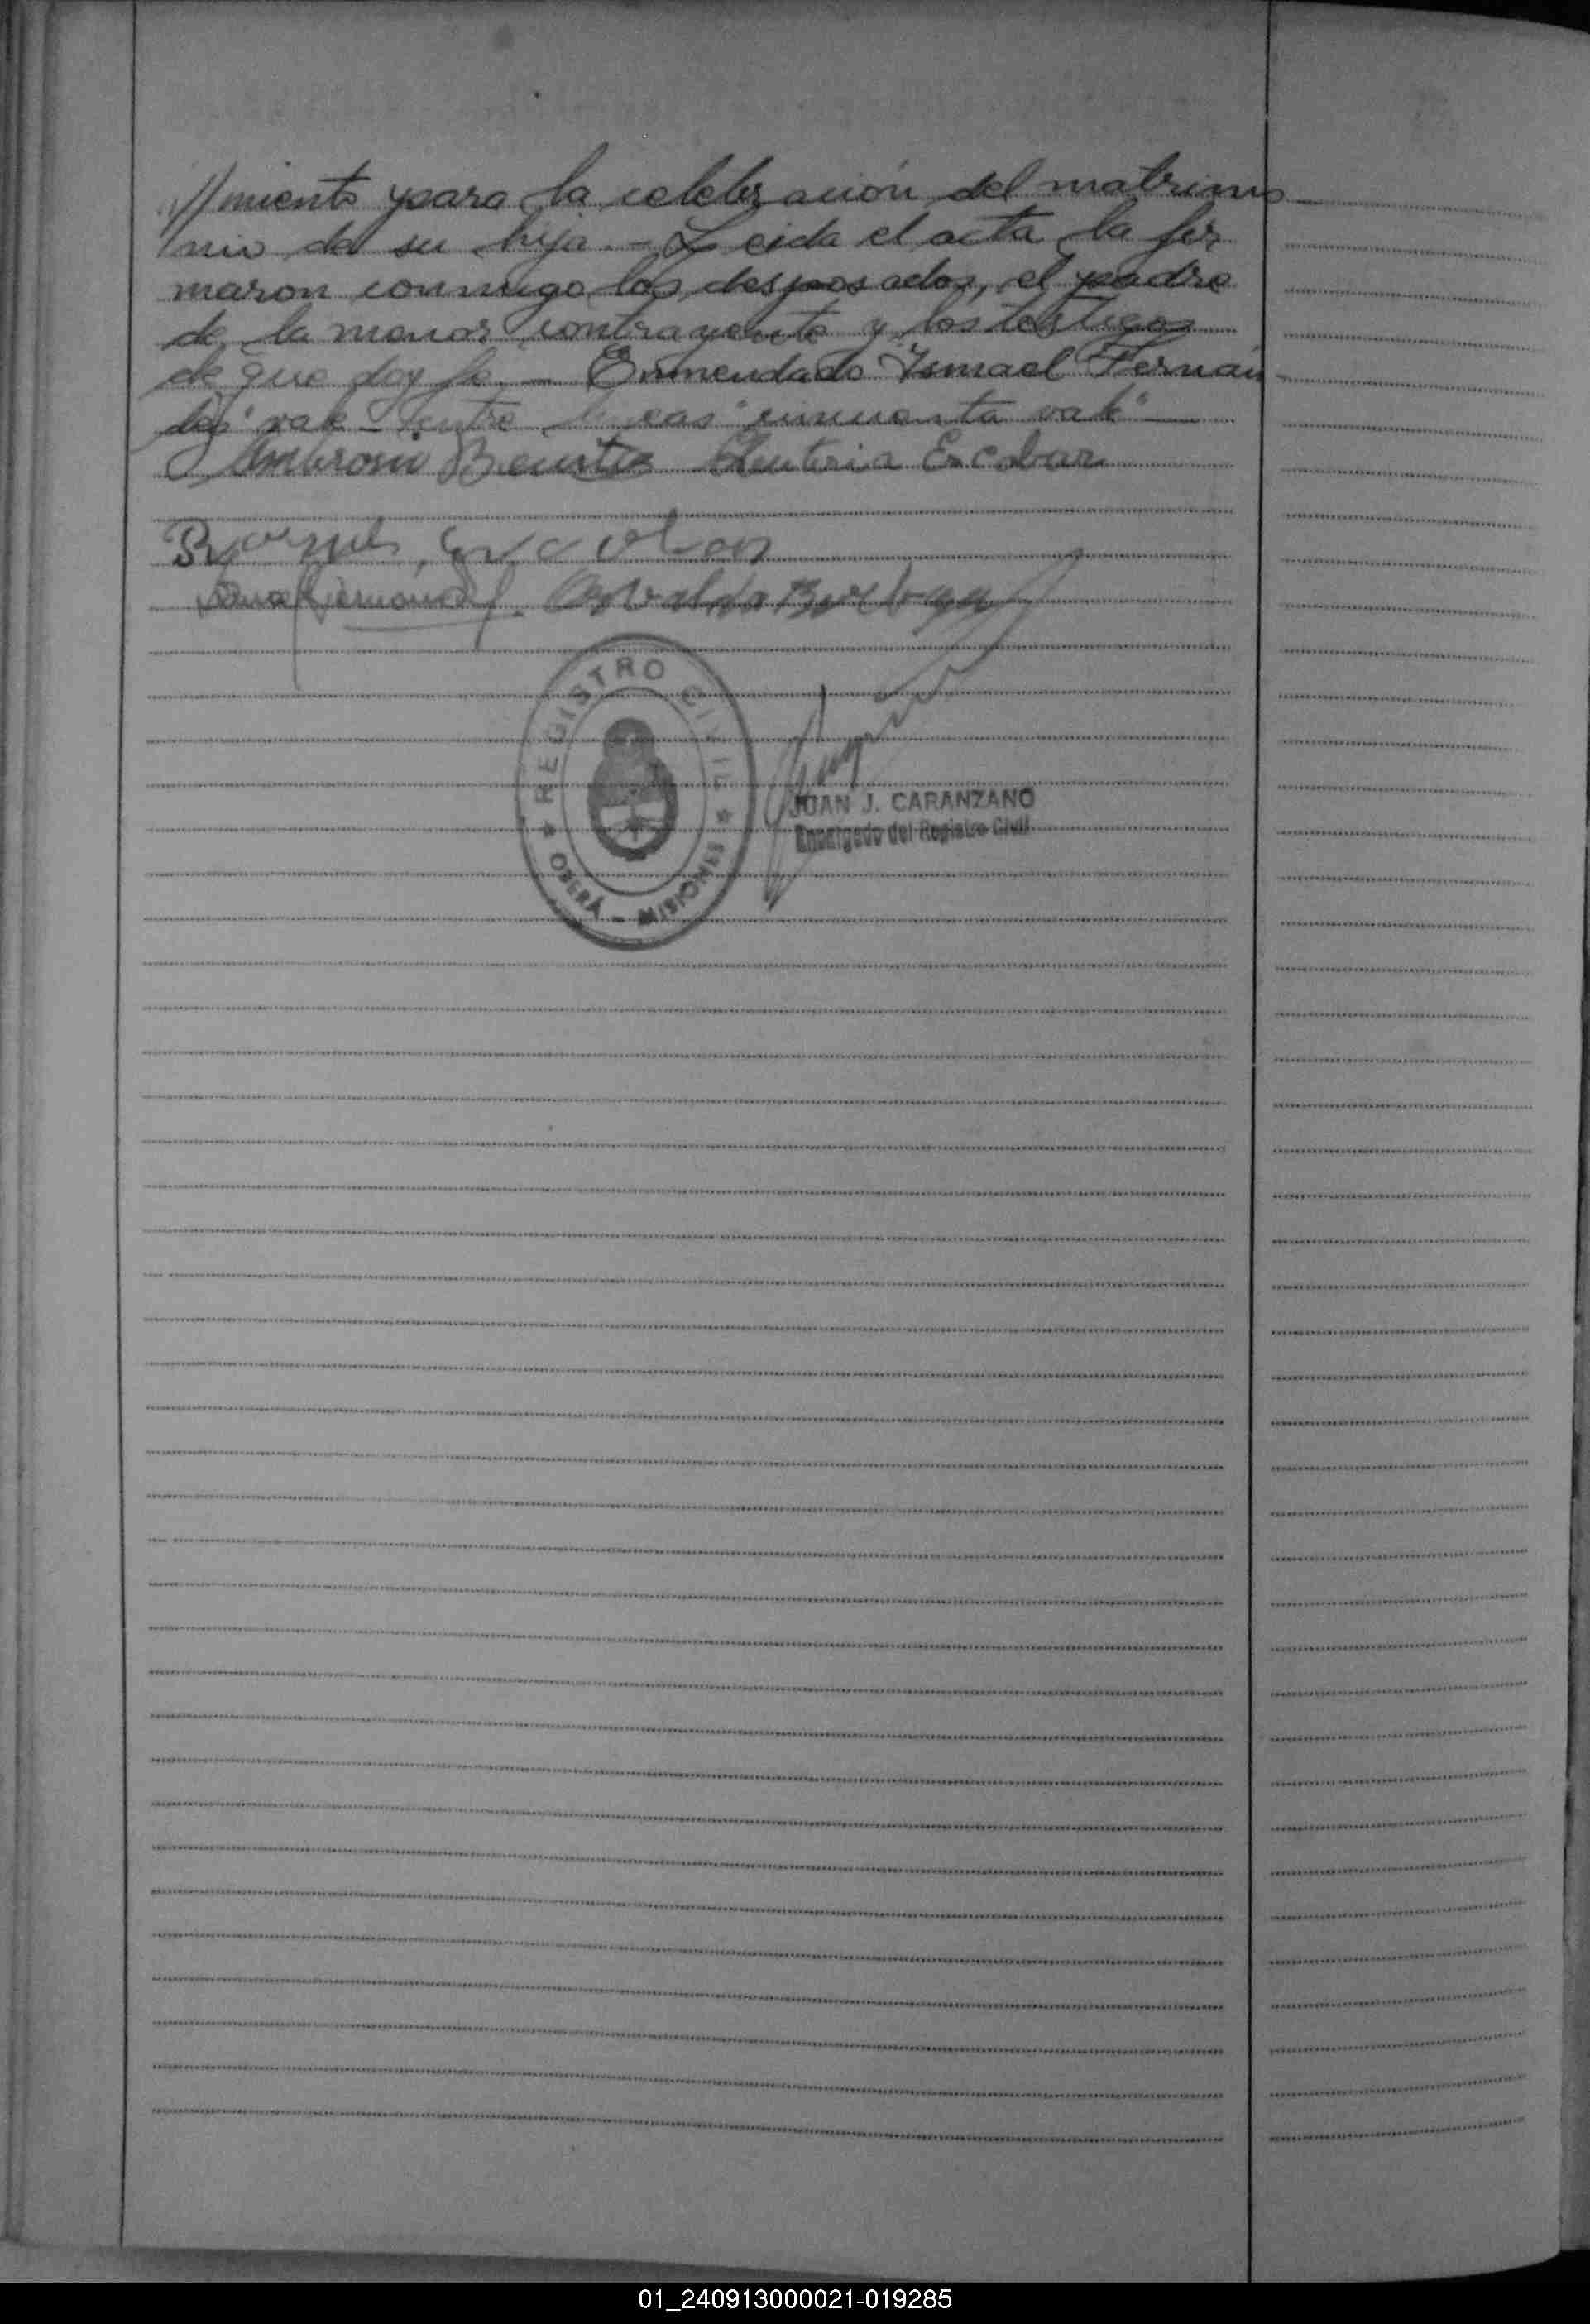 //miento para la celebración del matrimo
nio de su hija.- Leida el acta la fir
maron conmigo los desposados, el padre
de la menor contrayente y los testigos
de que doy fe.- Enmendado "Ismael Fernán
dez" vale - entre lineas "cincuenta vale"
Ambrosio Benitez Eleuteria Escobar
Escobar
Osvaldo
REGISTRO CIVIL
OBERÁ - MISIONES
JUAN J. CARANZANO
Encargado del Registro Civil
01_240913000021-019285